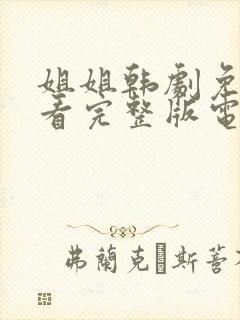 姐姐韩剧免
看完整版電
弗蘭克 斯蒈